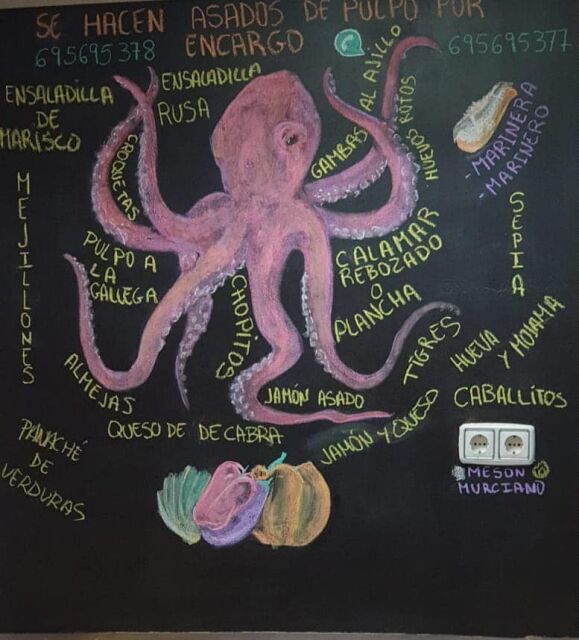 SE HACEN ASADOS DE PULPO POR
ENCARGO
695695378
695695377
ENSALADILLA
DE
MARISCO
ENSALADILLA
RUSA
CROQUETAS
GAMBAS AL AJILLO
HUEVOS ROTOS
-MARINERA
-MARINERO
MEJILLONES
PULPO A
LA
GALLEGA
CHOPITOS
CALAMAR
REBOZADO
O
PLANCHA
SEPIA
TIGRES
HUEVA
Y MOJAMA
ALMEJAS
JAMÓN ASADO
CABALLITOS
QUESO DE DE CABRA
JAMÓN Y QUESO
PANACHÉ
DE
VERDURAS
MESON
MURCIANO